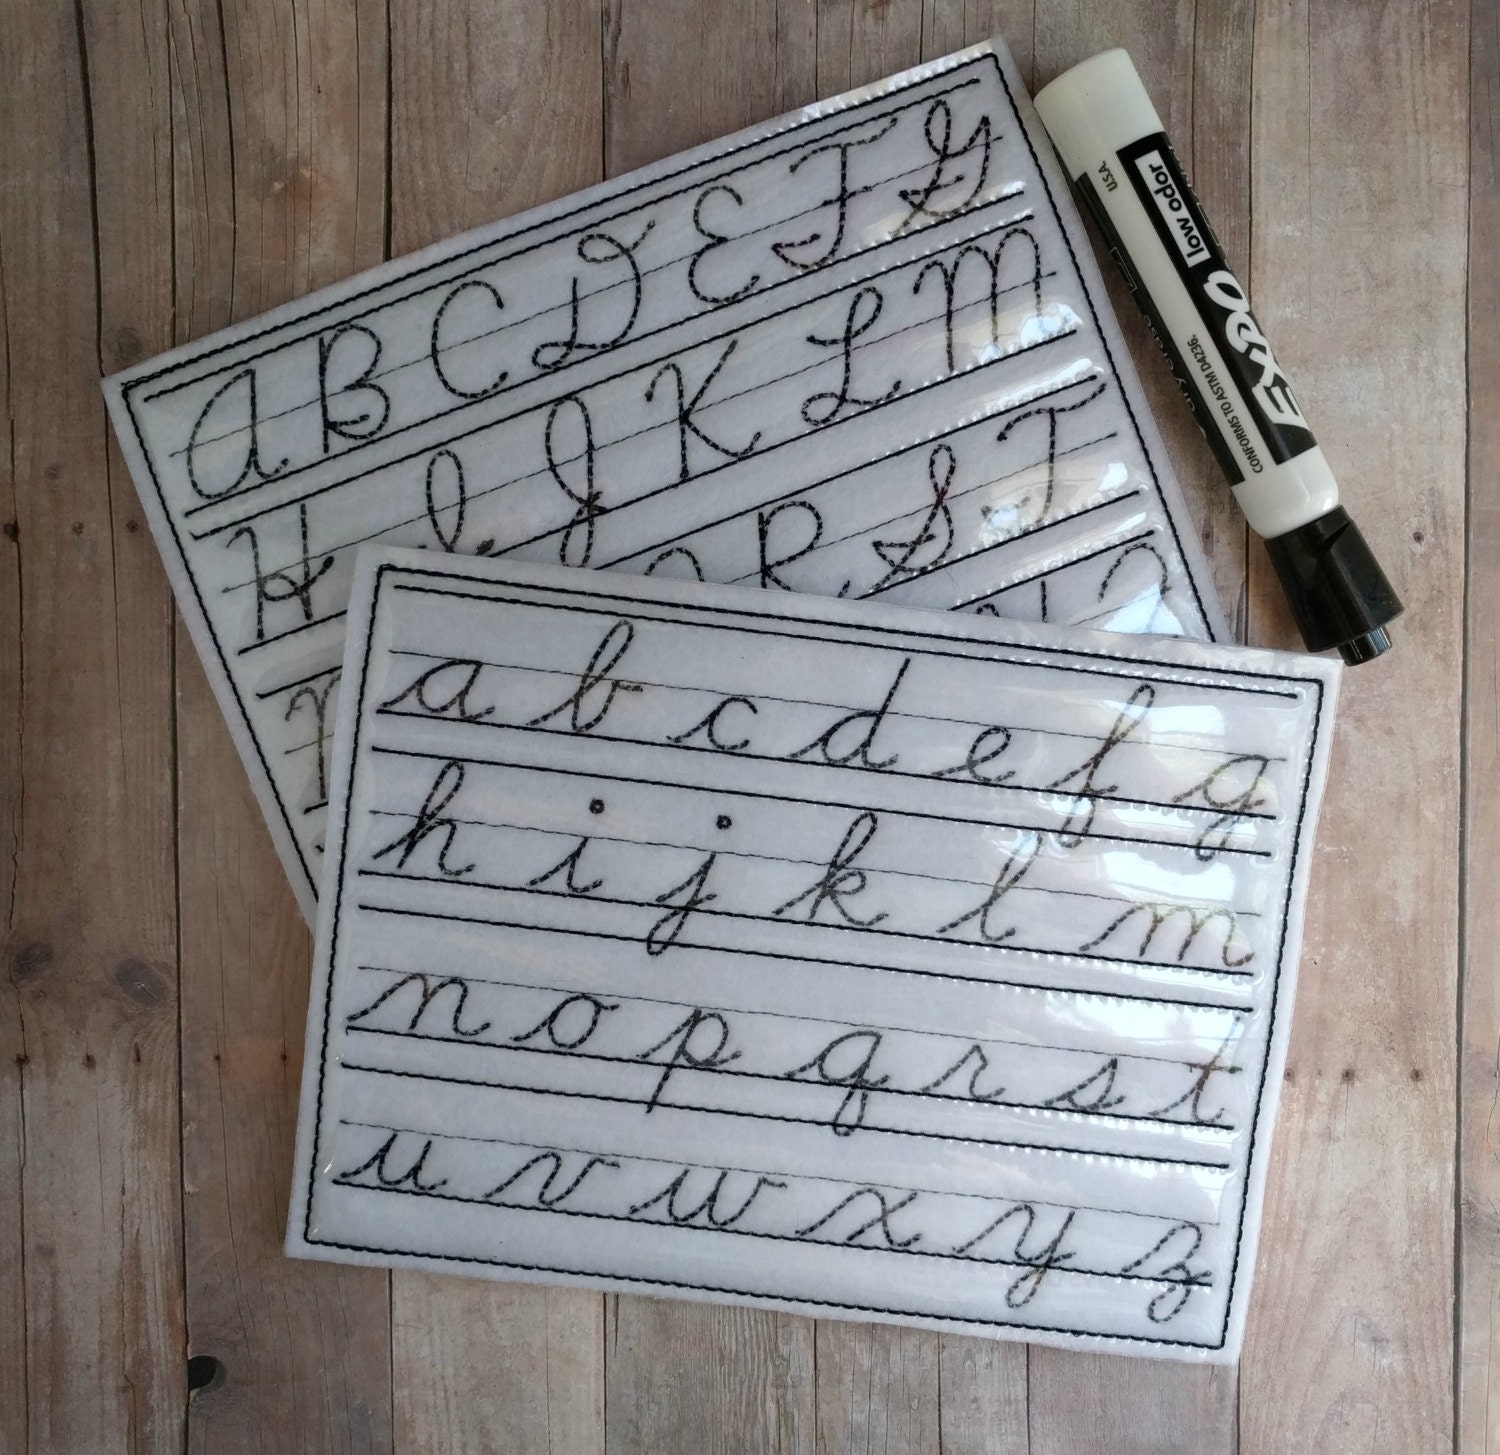 A B C D E F G
H I J K L M
R S T
a b c d e f g
h i j k l m
n o p q r s t
u v w x y z
USA.
low odor
EXPO
CONFORMS TO ASTM D4236.